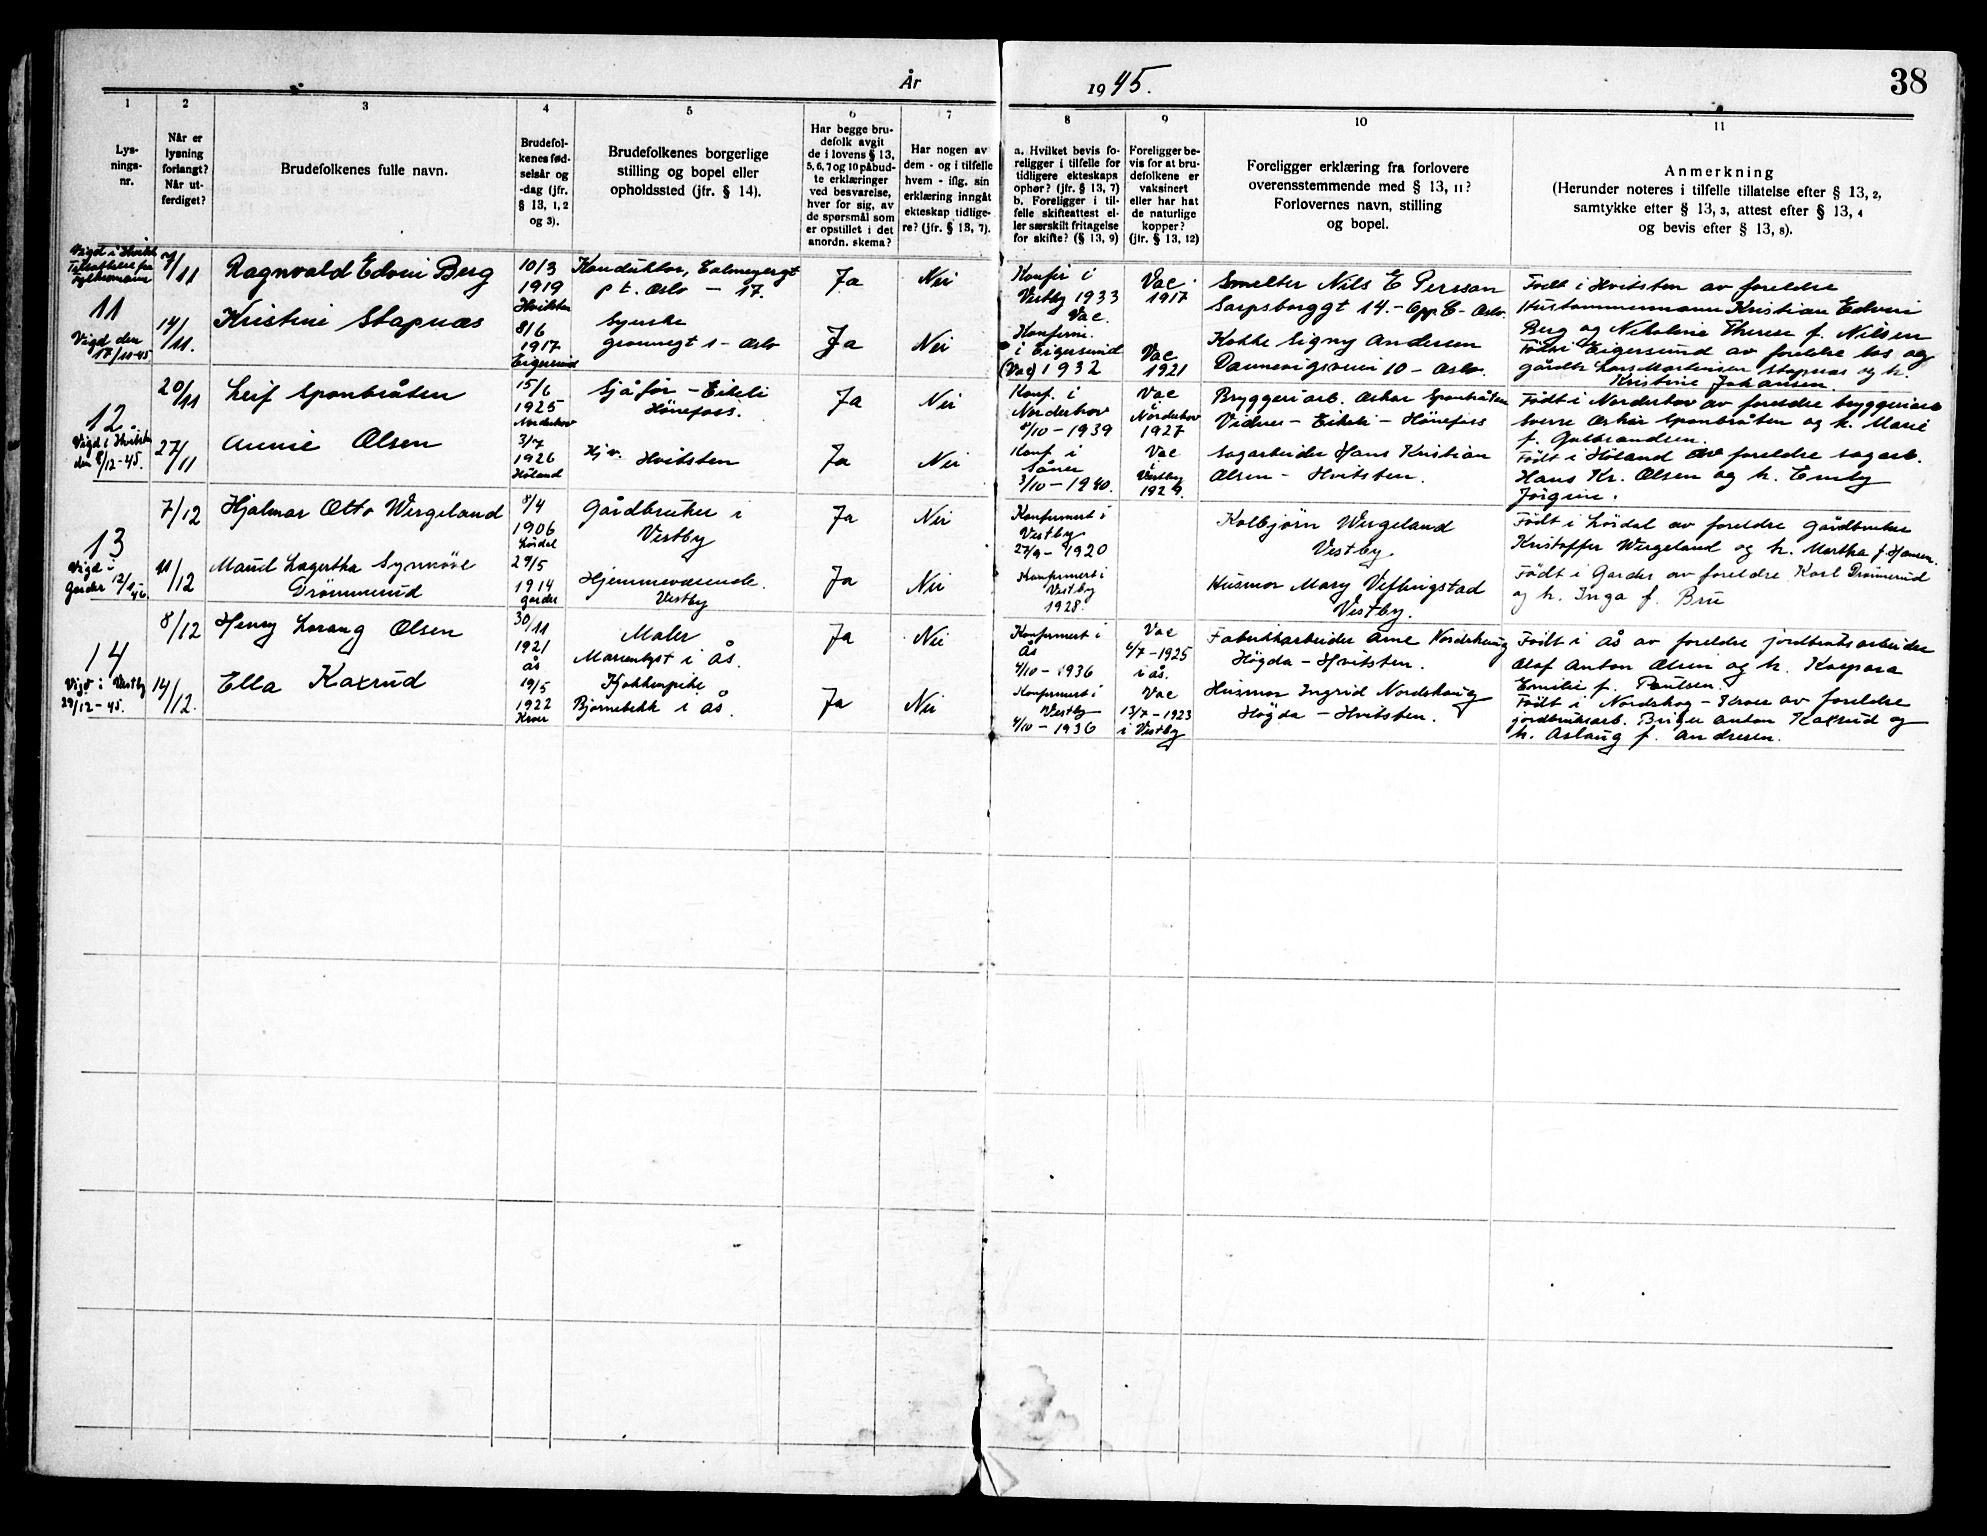 År 1945.
38
1
2
3
4
5
6
7
8
9
10
11
Lys-
nings-
nr.
Når er
lysning
forlangt?
Når ut-
ferdiget?
Brudefolkenes fulle navn.
Brudefol-
kenes fød-
selsår og
-dag (jfr.
§ 13, 1, 2
og 3).
Brudefolkenes borgerlige
stilling og bopel eller
opholdssted (jfr. § 14).
Har begge bru-
defolk avgit
de i lovens § 13,
5, 6, 7 og 10 påbud-
te erklæringer
ved besvarelse,
hver for sig, av
de spørsmål som
er opstillet i det
anordn. skema?
Har nogen av
dem - og i tilfelle
hvem - iflg. sin
erklæring inngåt
ekteskap tidlige-
re? (jfr. § 13, 7).
a. Hvilket bevis fo-
religger i tilfelle for
tidligere ekteskaps
ophør? (jfr. § 13, 7)
b. Foreligger i til-
felle skifteattest el-
ler særskilt fritagelse
for skifte? (§ 13, 9)
Foreligger be-
vis for at bru-
defolkene er
vaksinert
eller har hat
de naturlige
kopper?
(jfr. § 13, 12)
Foreligger erklæring fra forlovere
overensstemmende med § 13, 11?
Forlovernes navn, stilling
og bopel.
Anmerkning
(Herunder noteres i tilfelle tillatelse efter § 13, 2,
samtykke efter § 13, 3, attest efter § 13, 4
og bevis efter § 13, 8).
Vigd i Hvitsten
Tillatelse fra
fylkesmann
11
Vigd den
17/11-45
7/11
Ragnvald Edvin Berg
10/3
1919
Hvitsten
Konduktør, Calmeyergt
p t. Oslo - 17.
Ja
Nei
Konfir i
Vestby 1933
Vac.
Vac.
1917
Smelter Nils E Persson
Sarpsborggt 14. - Opp. C - Oslo.
Født i Hvitsten av foreldre
Kristian Edvin
Berg og Nikoline Therese f. Nilsen
14/11.
Kristine Stapnæs
8/6
1917
Eigersund
Syerske
1 - Oslo
Ja
Nei
Konfirm.
i Eigersund
(Vac) 1932
Vac
1921
Kokke Signy Andersen
Dannevigsveien 10 - Oslo.
Født i Eigersund av foreldre los og
gårdbr Lars Martinsen Stapnæs og h.
Kristine Johansen.
12
Vigd i Hvitsten
den 8/12-45.
20/11
Leif Sponbråten
15/6
1925
Norderhov
Sjåför - Eikeli
Hönefoss.
Ja
Nei
Konf. i
Norderhov
8/10 - 1939
Vac
i
Norderhov
1927
Bryggeriarb. Oskar Sponbråten
Vidnes - Eikeli - Hönefoss
Födt i Norderhov av foreldre bryggeriarb
Sverre Oskar Sponbråten og h. Marie
f. Gulbrandsen.
27/11
Annie Olsen
3/7
1926
Höland
Hjv. Hvitsten
Ja
Nei
Konf i
Såner
3/10 - 1940.
Vac
i
Vestby
1929.
Sagarbeider Hans Kristian
Olsen - Hvitsten.
Födt i Höland av foreldre sagarb.
Hans Kr. Olsen og h. Emly
Jörgine.
13
Vigd i
Garder 12/1-46
7/12
Hjalmar Otto Wergeland
8/4
1906
Lördal
Gårdbruker i
Vestby
Ja
Nei
Konfirmert i
Vestby
27/9 - 1920
Kolbjörn Wergeland
Vestby
Födt i Lördal av foreldre gårdbruker
Kristoffer Wergeland og h. Martha f. Hansen.
11/12
Maud Lagertha Synnöve
Drömmerud
29/5
1914
Garder
Hjemmeværende.
Vestby
Ja
Nei
Konfirmert i
Vestby
1928.
Husmor Mary Veflingstad
Vestby.
Födt i Garder av foreldre Karl Drömmerud
og h. Inga f. Bru
14
Vigd i Vestby
29/12-45.
8/12
Henry Lorang Olsen
30/11
1921
ås
Maler
Marienlyst i Ås.
Ja
Nei
Konfirmert i
Ås
4/10 - 1936
Vac
6/7 - 1925
i ås.
Fabrikkarbeider Arne Nordshaug
Högda - Hvitsten.
Födt i Ås av foreldre jordbruksarbeider
Olaf Anton Olsen og h. Kaspara
Emilie f. Paulsen.
14/12.
Ella Kaxrud
19/5
1922
Kroer
Kjøkkenpike
Bjørnebekk i Ås.
Ja
Nei
Konfirmert i
Vestby
4/10 - 1936
Vac
13/7 - 1923
i Vestby
Husmor Ingrid Nordshaug
Högda - Hvitsten.
Födt i Nordskog - Kroer av foreldre
jordbruksarb. Birger Anton Kaxrud og
h. Aslaug f. Andresen.